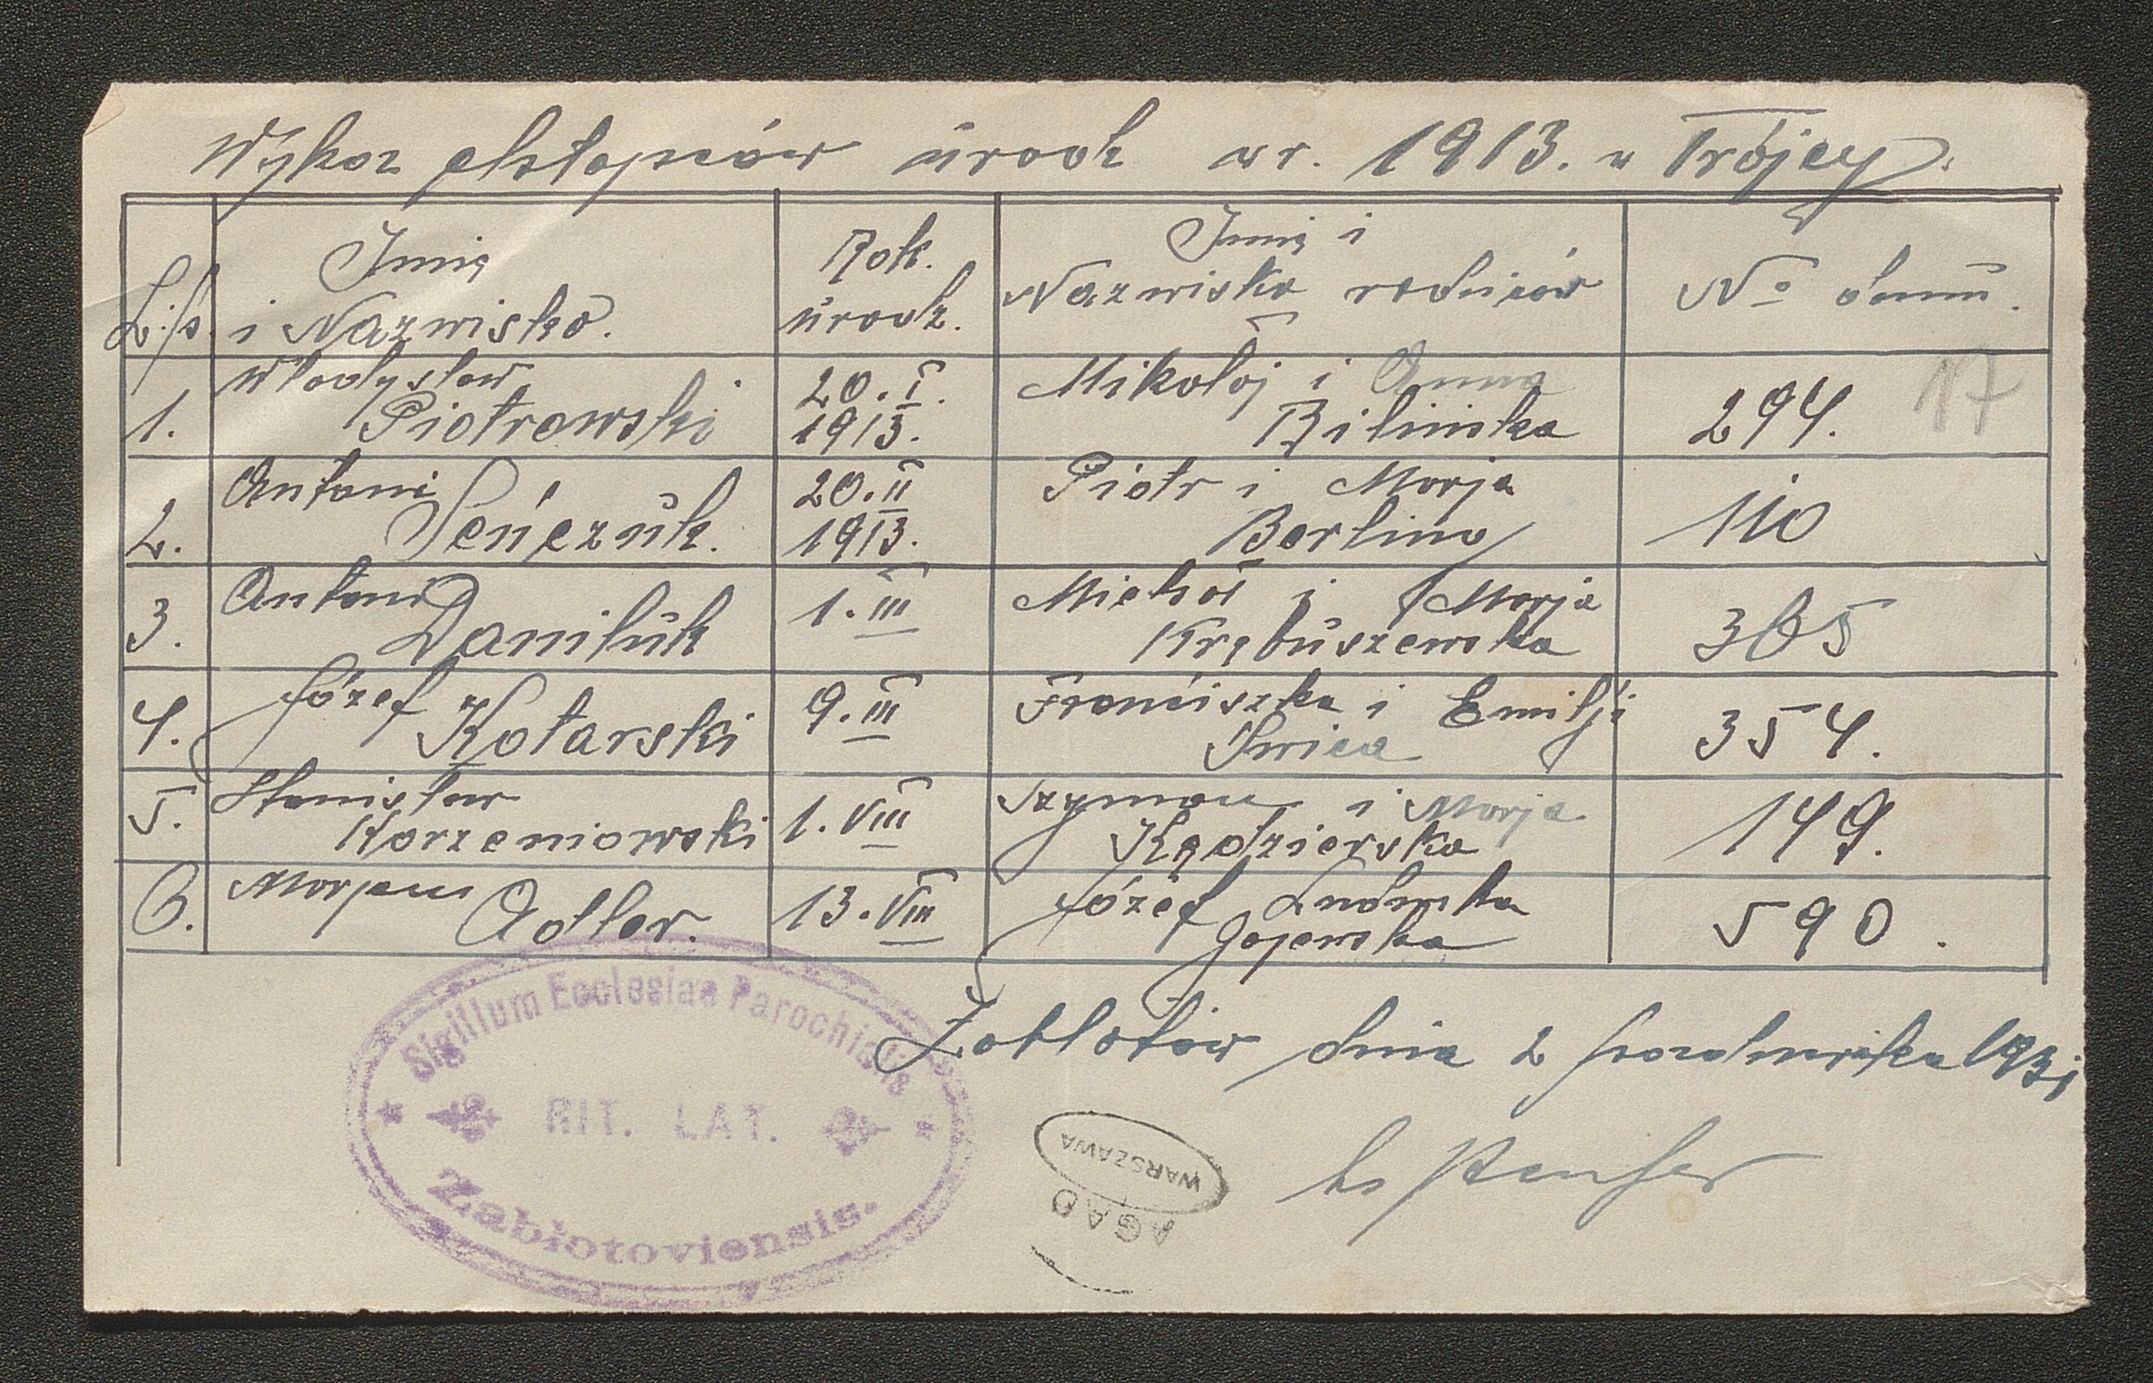 Wykaz chłopców urodz w r. 1913. w Trójcy.
L.p. Imię i Nazwisko. Rok. urodz. Imię i Nazwiska rodziców No domu.
17
1. Władysław Piotrowski 20.I. 1913. Mikołaj i Anna Bilinska 294.
2. Antoni Seńczuk. 20.II 1913. Piotr i Marja Berlina 110
3. Antoni Daniluk 1.III Michał i Marja Krębuszewska 365
4. Józef Kotarski 9.III Franciszka i Emilji 354.
5. Stanisław Korzeniowski 1.VIII Szymon i Marja Kędzierska 149.
6. Marjan Adler. 13.VIII Józef Ludwika Gajewska 590.
Zabłotów dnia 2 października 1931
Sigillum Ecclesiae Parochialis
RIT. LAT.
Zabłotoviensis.
AGAD
WARSZAWA